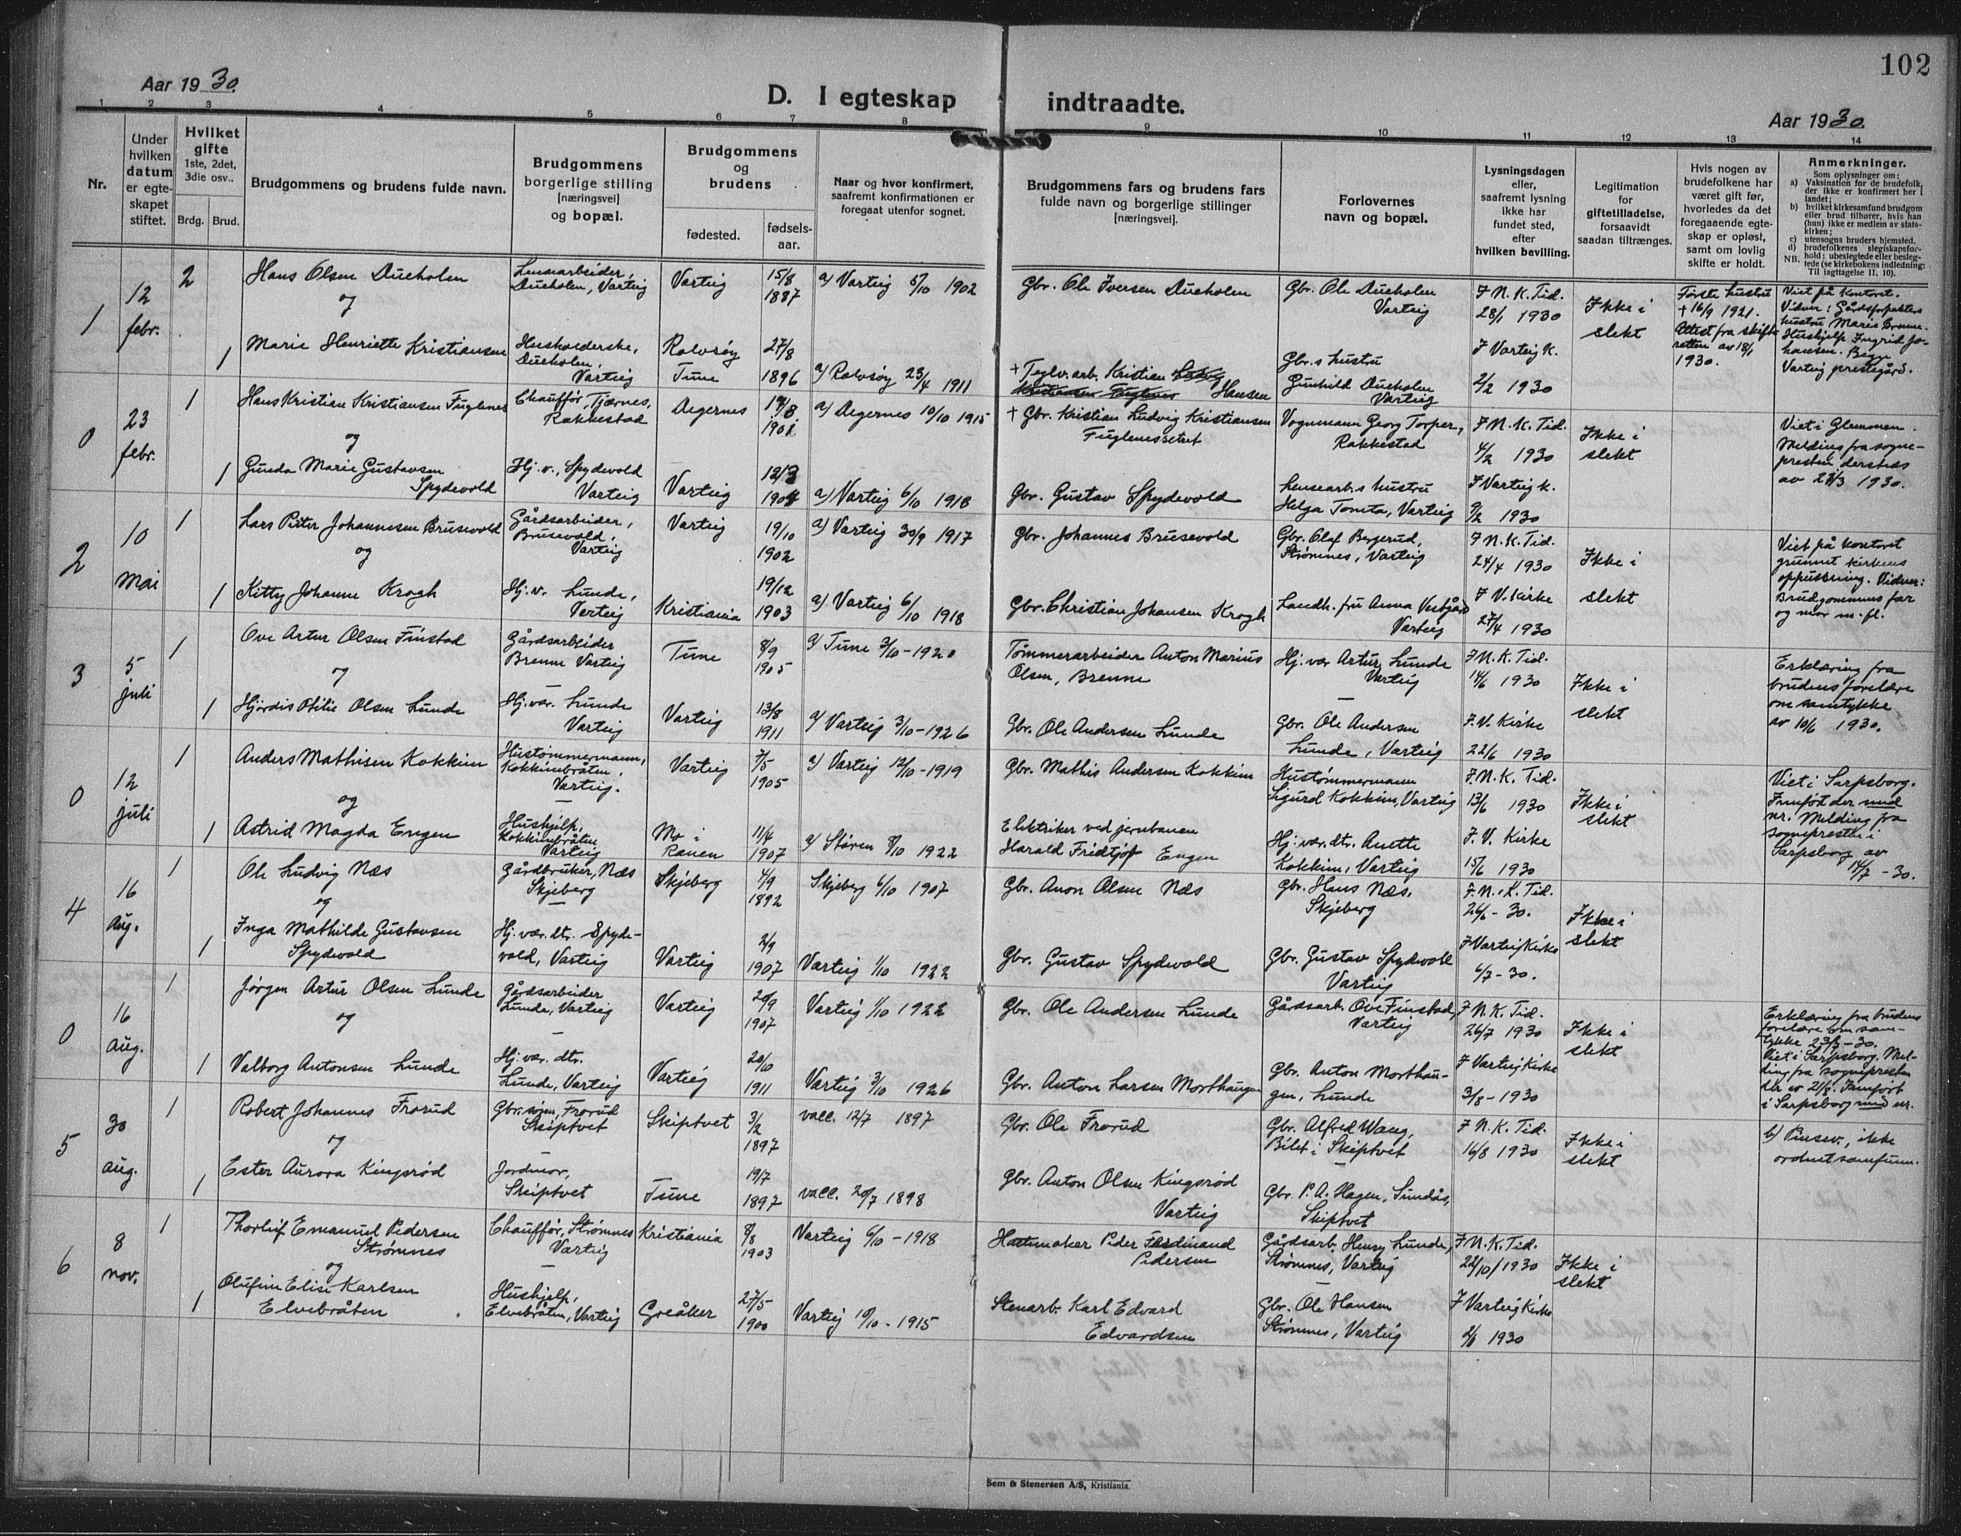 102
Aar 1930.
D. I egteskap indtraadte.
Aar 1930.
1 2 3 4 5 6 7 8 9 10 11 12 13 14
Nr.
Under hvilken datum er egteskapet stiftet.
Hvilket gifte 1ste, 2det, 3die osv..
Brdg. Brud.
Brudgommens og brudens fulde navn.
Brudgommens borgerlige stilling [næringsvei] og bopæl.
Brudgommens og brudens
fødested.
fødsels-aar.
Naar og hvor konfirmert, saafremt konfirmationen er foregaat utenfor sognet.
Brudgommens fars og brudens fars fulde navn og borgerlige stillinger [næringsvei].
Forlovernes navn og bopæl.
Lysningsdagen eller, saafremt lysning ikke har fundet sted, efter hvilken bevilling.
Legitimation for giftetilladelse, forsaavidt saadan tiltrænges.
Hvis nogen av brudefolkene har været gift før, hvorledes da det foregaaende egteskap er opløst, samt om lovlig skifte er holdt.
Anmerkninger.
Som oplysninger om:
a) Vaksination for de brudefolk, der ikke er konfirmert her i landet;
b) hvilket kirkesamfund brudgom eller brud tilhører, hvis han (hun) ikke er medlem av statskirken;
c) utensogns bruders hjemsted.
d) brudefolkenes slegtskapsforhold: ubeslegtede eller beslegtede (se kirkebokens indledning:
NB. Til iagttagelse II, 10).
1 12 febr. 2 Hans Olsen Dueholen Lenearbeider, Dueholen, Varteig Varteig 15/8 1887 a) Varteig 5/10 1902 Gbr. Ole Iversen Dueholen Gbr. Ole Dueholen Varteig F. N. K. Tid. 28/1 1930 Ikke i slekt Første hustru + 16/9 1921. Attest fra skifteretten av 18/1 1930. Viet på kontoret.
og
1 Marie Henriette Kristiansen Husholderske, Dueholen, Varteig Rolvsøy Tune 27/8 1896 a) Rolvsøy 23/4 1911 + Teglv.arb. Kristian Hansen Gbr.s hustru Gunhild Dueholen Varteig F Varteig K. 2/2 1930 Varteig prestegård.
0 23 febr. 1 Hans Kristian Kristiansen Fuglenes Chauffør, Tjærnes, Rakkestad Degernes 1901 a) Degernes 10/10 1915 + Gbr. Kristian Ludvig Kristiansen Vognmann Georg Torper, Rakkestad F. N. K. Tid. 4/2 1930 Ikke i slekt Viet i Glemmen. Melding fra sognepresten dersteds
og
1 Gunda Marie Gustavsen Spydevold Hj. v., Spydevold Varteig Varteig a) Varteig 6/10 1918 Gbr. Gustav Spydevold Lensearb.s hustru Helga Tomta, Varteig F Varteig K. 9/2 1930
2 10 mai 1 Lars Peter Johannesen Brusevold Gårdsarbeider, Brusevold, Varteig Varteig 19/10 1902 a) Varteig 30/9 1917 Gbr. Johannes Brusevold Gbr. Olaf Bergerud, Strømnes, Varteig F. N. K. Tid. 24/4 1930 Ikke i slekt Viet på kontoret grunnet kirkens oppussing. Vidner: Brudgommens far og mor m. fl.
og
1 Kitty Johanne Krogh Hj. v. Lunde, Varteig Kristiania 19/12 1903 a) Varteig 6/10 1918 Gbr. Christian Johansen Krogh Landh. fru Anna Vestgård Varteig F. V. Kirke 27/4 1930
3 5 juli 1 Ove Artur Olsen Finstad Gårdsarbeider Brenne Varteig Tune 8/9 1905 a) Tune 3/10-1920 Tømmerarbeider Anton Marius Olsen, Brenne Hj. vær. Artur Lunde Varteig F. N. K. Tid. 14/6 1930 Ikke i slekt Erklæring fra brudens forelære om samtykke av 10/6 1930.
og
1 Hjørdis Otilie Olsen Lunde Hj. vær. Lunde Varteig Varteig 13/8 1911 a) Varteig 3/10-1926 Gbr. Ole Andersen Lunde Gbr. Ole Andersen Lunde, Varteig F. V. Kirke 22/6 1930
0 12 juli 1 Anders Mathisen Kokkim Hustømmermann, Kokkimbråten, Varteig. Varteig 7/5 1905 a) Varteig 12/10-1919 Gbr. Mathis Andersen Kokkim Hustømmermann Sigurd Kokkim, Varteig F. N. K. Tid. 13/6 1930 Ikke i slekt Viet i Sarpsborg. Innført der med nr. Melding fra sognepresten i Sarpsborg av 14/7-30.
og
1 Astrid Magda Engen Hushjelp, Kokkimbråten Varteig Mo i Ranen 11/4 1907 a) Støren 8/10 1922 Elektriker ved jernbanen Harald Fridtjof Engen Hj. vær. dtr. Anette Kokkim, Varteig F. V. Kirke 15/6 1930
4 16 aug. 1 Ole Ludvig Næs Gårdbruker, Næs Skjeberg Skjeberg 4/9 1892 Skjeberg 6/10 1907 Gbr. Anon Olsen Næs Gbr. Hans Næs, Skjeberg F. N. K. Tid. 26/6-30. Ikke i slekt
og
1 Inga Mathilde Gustavsen Spydevold Hj. vær. dtr. Spydevold, Varteig Varteig 2/9 1907 Varteig 1/10 1922 Gbr. Gustav Spydevold Gbr. Gustav Spydevold Varteig F Varteig Kirke 6/7-30.
0 16 aug. 1 Jørgen Artur Olsen Lunde Gårdsarbeider Lunde, Varteig Varteig 20/9 1907 Varteig 1/10 1922 Gbr. Ole Andersen Lunde Gårdsarb. Ove Finstad, Varteig F. N. K. Tid. 26/7 1930 Ikke i slekt Erklæring fra brudens forelære om samtykke 23/7-30. Viet i Sarpsborg. Melding fra sognepresten der av 21/8. Innført i Sarpsborg med nr.
og
1 Valborg Antonsen Lunde Hj. vær. dtr. Lunde, Varteig Varteig 20/10 1911 Varteig 3/10 1926 Gbr. Anton Larsen Morthaugen Gbr. Anton Morthaugen, Lunde F Varteig Kirke 3/8-1930
5 30 aug. 1 Robert Johannes Frorud Gbr. sønn, Frorud Skiptvet Skiptvet 3/2 1897 vacc. 12/7 1897 Gbr. Ole Frorud Gbr. Alfred Wang, Bilet i Skiptvet F. N. K. Tid. 16/8 1930 Ikke i slekt b) Pinsev., ikke ordnet samfunn.
og
1 Ester Aurora Kingsrød Jordmor, Skiptvet Tune 19/7 1897 vacc. 20/7 1898 Gbr. Anton Olsen Kingsrød Varteig Gbr. P. A. Hagen, Sundås, Skiptvet
6 8 nov. 1 Thorleif Emanuel Pedersen Strømnes Chauffør, Strømnes Varteig Kristiania 8/8 1903 Varteig 6/10-1918 Hattemaker Peder Ferdinand Pedersen Gårdsarb. Henry Lunde, Strømnes, Varteig F. N. K. Tid. 22/10/1930 Ikke i slekt
og
1 Olufine Elise Karlsen Elvebråten Hushjelp, Elvebråten, Varteig Greåker 27/5 1900 Varteig 10/10-1915 Stenarb. Karl Edvard Edvardsen Gbr. Ole Hansen Strømnes, Varteig F Varteig Kirke 1930
Sem & Stenersen A/S, Kristiania.